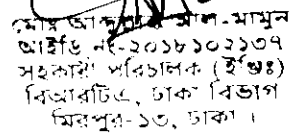 মোঃ আল-মামুন
আইডি নং-২০১৮১০২১৩৭
সহকারী পরিচালক (ইঞ্জিঃ)
বিআরটিএ, ঢাকা বিভাগ
মিরপুর-১৩, ঢাকা।